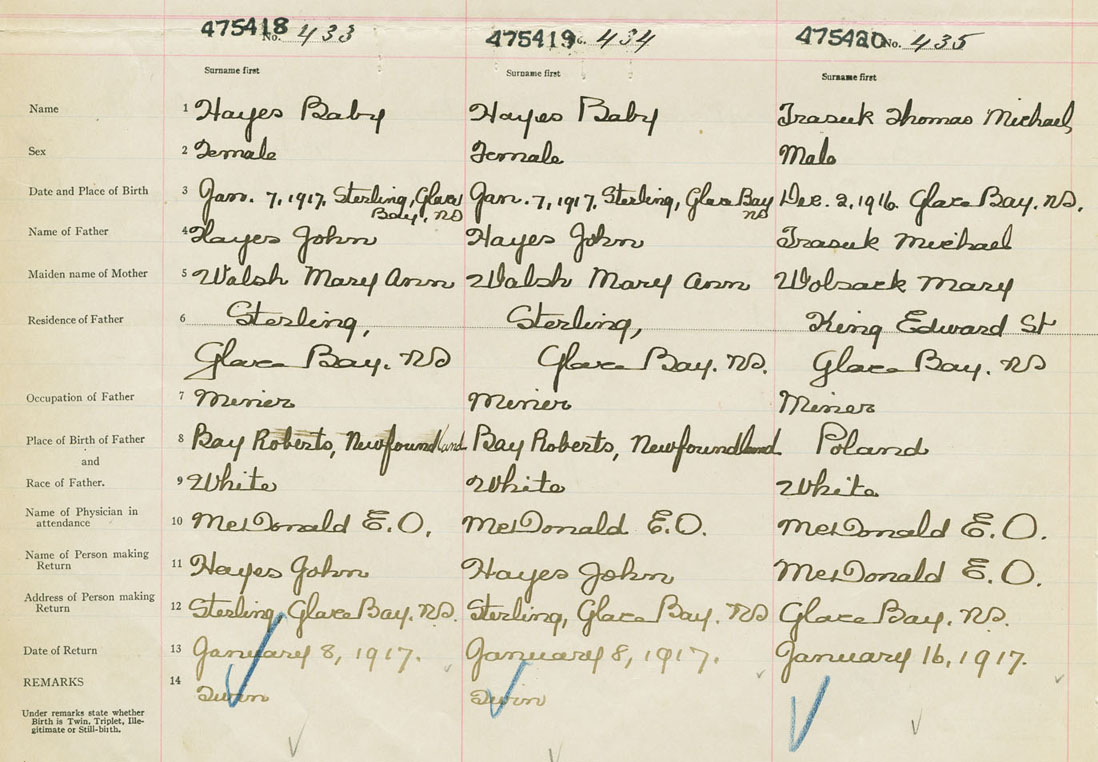 475418 No. 433 475419 434 475420 No. 435
Surname first Surname first Surname first
Name 1 Hayes Baby Hayes Baby Trasuk Thomas Michael
Sex 2 Female Female Male
Date and Place of Birth 3 Jan. 7, 1917. Sterling, Glace Jan. 7, 1917. Sterling, Glace Bay Dec. 2, 1916. Glace Bay. NS.
Bay, NS NS
Name of Father 4 Hayes John Hayes John Trasuk Michael
Maiden name of Mother 5 Walsh Mary Ann Walsh Mary Ann Wolsack Mary
Residence of Father 6 Sterling, Sterling, King Edward St
Glace Bay. NS Glace Bay. NS. Glace Bay. NS
Occupation of Father 7 Miner Miner Miner
Place of Birth of Father 8 Bay Roberts, Newfoundland Bay Roberts, Newfoundland Poland
and
Race of Father. 9 White White White
Name of Physician in
attendance 10 McDonald E.O. McDonald E.O. McDonald E.O.
Name of Person making
Return 11 Hayes John Hayes John McDonald E.O.
Address of Person making
Return 12 Sterling, Glace Bay. NS. Sterling, Glace Bay. NS Glace Bay. NS.
Date of Return 13 January 8, 1917. January 8, 1917. January 16, 1917.
REMARKS 14 Twin Twin
Under remarks state whether
Birth is Twin, Triplet, Ille-
gitimate or Still-birth.